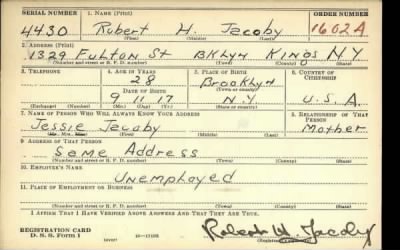 SERIAL NUMBER 1. NAME (Print) ORDER NUMBER
4430 Robert H. Jacoby 1602A
(First) (Middle) (Last)
2. ADDRESS (Print)
1329 Fulton St BKLyn Kings NY
(Number and street or R. F. D. number) (Town) (County) (State)
3. TELEPHONE 4. AGE IN YEARS 5. PLACE OF BIRTH 6. COUNTRY OF CITIZENSHIP
28 Brooklyn
DATE OF BIRTH (Town or county)
9 11 17 N.Y. U.S.A
(Exchange) (Number) (Mo.) (Day) (Yr.) (State or country)
7. NAME OF PERSON WHO WILL ALWAYS KNOW YOUR ADDRESS 8. RELATIONSHIP OF THAT PERSON
Jessie Jacoby Mother
(Mr., Mrs., Miss) (First) (Middle) (Last)
9. ADDRESS OF THAT PERSON
Same Address
(Number and street or R. F. D. number) (Town) (County) (State)
10. EMPLOYER'S NAME
Unemployed
11. PLACE OF EMPLOYMENT OR BUSINESS
(Number and street or R. F. D. number) (Town) (County) (State)
I AFFIRM THAT I HAVE VERIFIED ABOVE ANSWERS AND THAT THEY ARE TRUE.
REGISTRATION CARD
D. S. S. FORM 1 (over) Robert H Jacoby